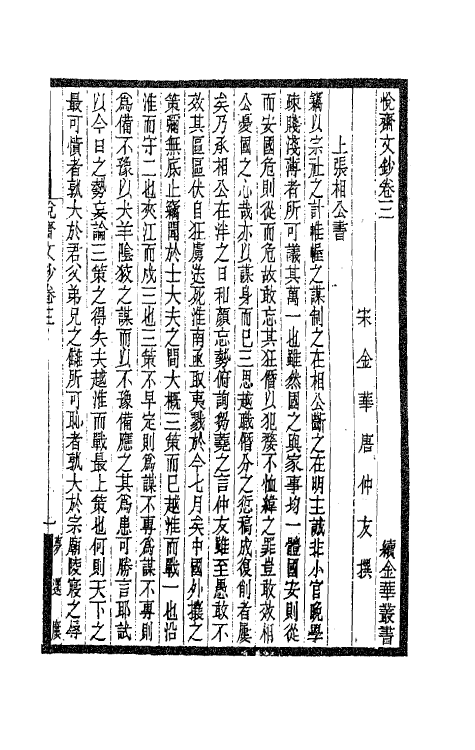 悅齋文鈔卷三
續金華叢書
宋金華唐仲友撰
上張相公書
竊以宗社之計帷幄之謀制之在相公斷之在明主誠非小官晩學
疎賤淺薄者所可議其萬一也雖然國之與家事均一體國安則從
而安國危則從而危故敢忘其狂僭以犯嫠不恤緯之罪豈敢效相
公憂國之心哉亦以謀身而已三思越職僭分之愆稿成復削者屢
矣乃承相公在泮之日和顏忘勢俯詢芻蕘之言仲友雖至愚敢不
效其區區伏自狂虜送死淮南亟取夷戮於今七月矣中國外攘之
策彌無底止竊聞於士大夫之間大概三策而已越淮而戰一也沿
淮而守二也夾江而戍三也三策不早定則為謀不專為謀不專則
為備不豫以犬羊陰狡之謀而以不豫備應之其為患可勝言耶試
以今日之勢妄論三策之得失夫越淮而戰最上策也何則天下之
最可憤者孰大於君父弟兄之讎所可恥者孰大於宗廟陵寢之辱
悅齋文鈔卷三
一
夢選廔